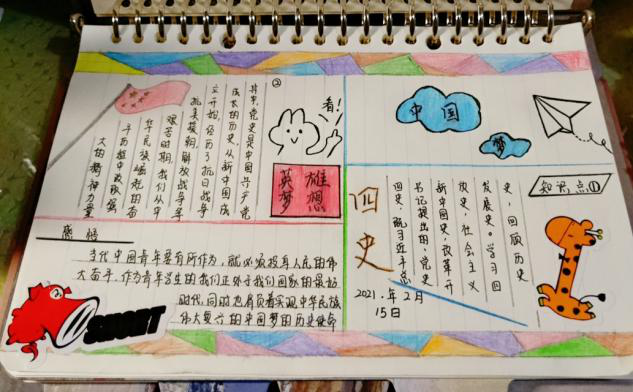 中国
梦
知识点①
四史
四史,既习近平总
书记提出的,党史
新中国史,改革开
放史,社会主义
发展史。学习四
史,回顾历史
2021.年2月
15日
②
其中,党史是中国共产党
成长的历史,从新中国成
立开始,经历了抗日战争
抗美援朝,解放战争等
艰苦时期,我们从中
华民族崛起的奋
斗历程中汲取强
大的精神力量
看!
英雄
梦想
感悟
当代中国青年要有所作为,就必须投身人民的伟
大奋斗,作为青年学生的我们正处于我们国家的最好
时代,同时也肩负着实现中华民族
伟大复兴的中国梦的历史使命
SNORT